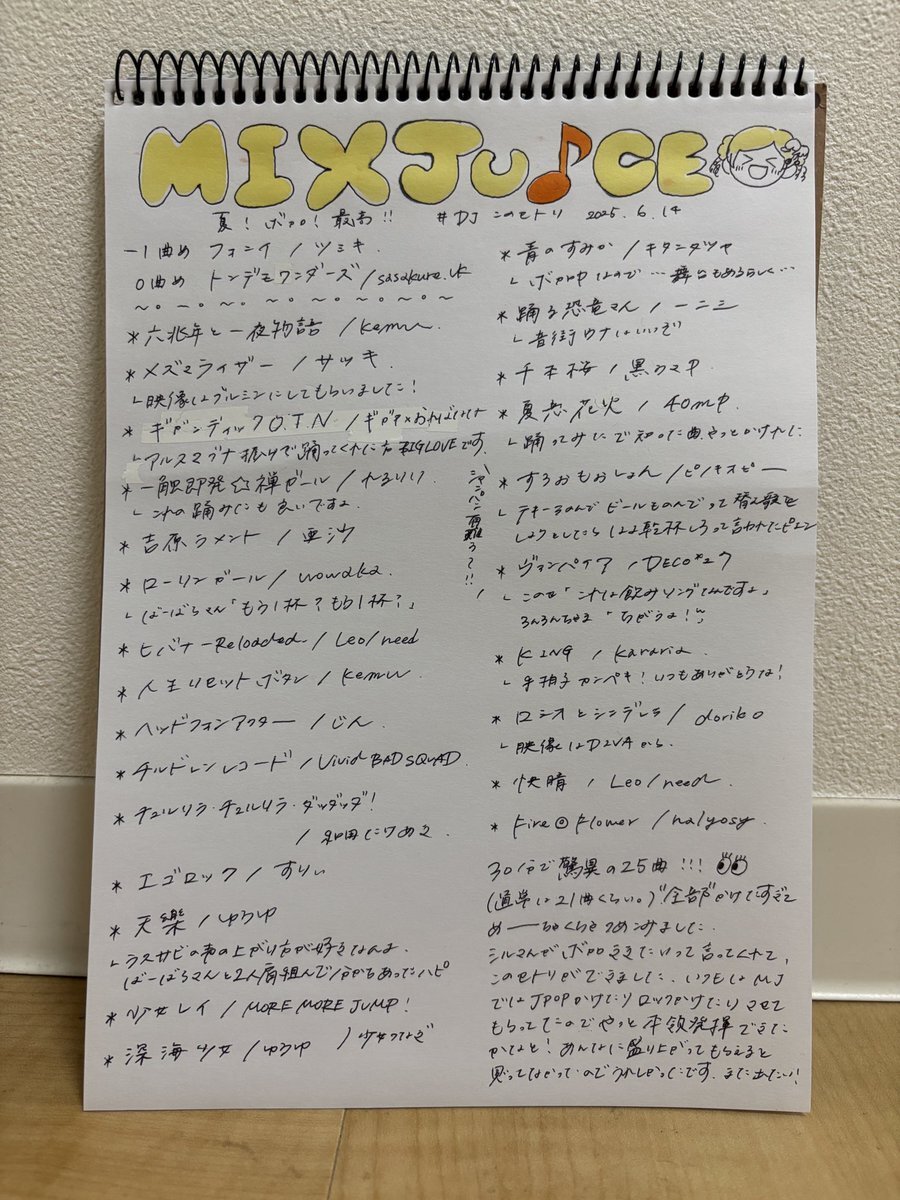 MIXJU♪CE
夏!ボカロ!最高!! #DJこのセトリ 2025.6.14
-1曲め フォニイ/ツミキ.
0曲め トンデモワンダーズ/sasakure.UK
〜。〜。〜。〜。〜。〜。〜。〜
*六兆年と一夜物語/kemu.
*メズマライザー/サツキ.
└映像はブルミンにしてもらいました!
*ギガンティックO.T.N/ギガP×おればななな
└アルスマグナ振りで踊ってくれた方 BIG LOVEです
*一触即発☆禅ガール/れるりり
└これの踊みたも良いですよ
*吉原ラメント/亜沙
*ローリンガール/wowaka.
└ばーばらさん「もう1杯?もう1杯?」
シャンパン有難う〜!!
*ヒバナ-Reloaded/Leo/need
*人生リセットボタン/kemu.
*ヘッドフォンアクター/じん.
*チルドレンレコード/Vivid BAD SQUAD.
*チュルリラ・チュルリラ・ダッダッダ!
/和田たけあき.
*エゴロック/すりぃ
*天樂/ゆうゆ
└ラスサビの声の上がり方が好きなんよ.
ばーばらさんと2人肩組んで
*少女レイ/MORE MORE JUMP!
*深海少女/ゆうゆ )少女つなぎ
*青のすみか/キタニタツヤ
└ボカロPなので…舞台もあるらしく…
*踊る恐竜さん/一二三
└音街ウナはいいぞ
*千本桜/黒うさP
*夏恋花火/40mP.
└踊ってみたで知った曲やっとかけれた
*すろぉもぉしょん/ピノキオピー
└テキーラのんでビールものんでって替え歌を
しようとしたらはよ乾杯しろって言われたピエン
*ヴァンパイア/DECO*27
└このせ「これは飲みソングなんですよ」
るんるんちゃま「ちがうよ!」
*KING/Kanaria.
└手拍子カンペキ!いつもありがとうな!
*ロミオとシンデレラ/doriko
└映像はDIVAから.
*快晴/Leo/need.
*Fire◎Flower/halyosy.
30分で驚異の25曲!!!
(通常は21曲くらい。)全部かけたすぎて
めーちゃくちゃつめこみました.
シルマんがボカロききたいって言ってくれて、
このセトリができました.いつもはMJ
ではJPOPかけたりロックかけたりさせて
もらってたのでやっと本領発揮できた
かなと!あんなに盛り上がってもらえると
思ってなかったのでうれしかったです.また出たい!